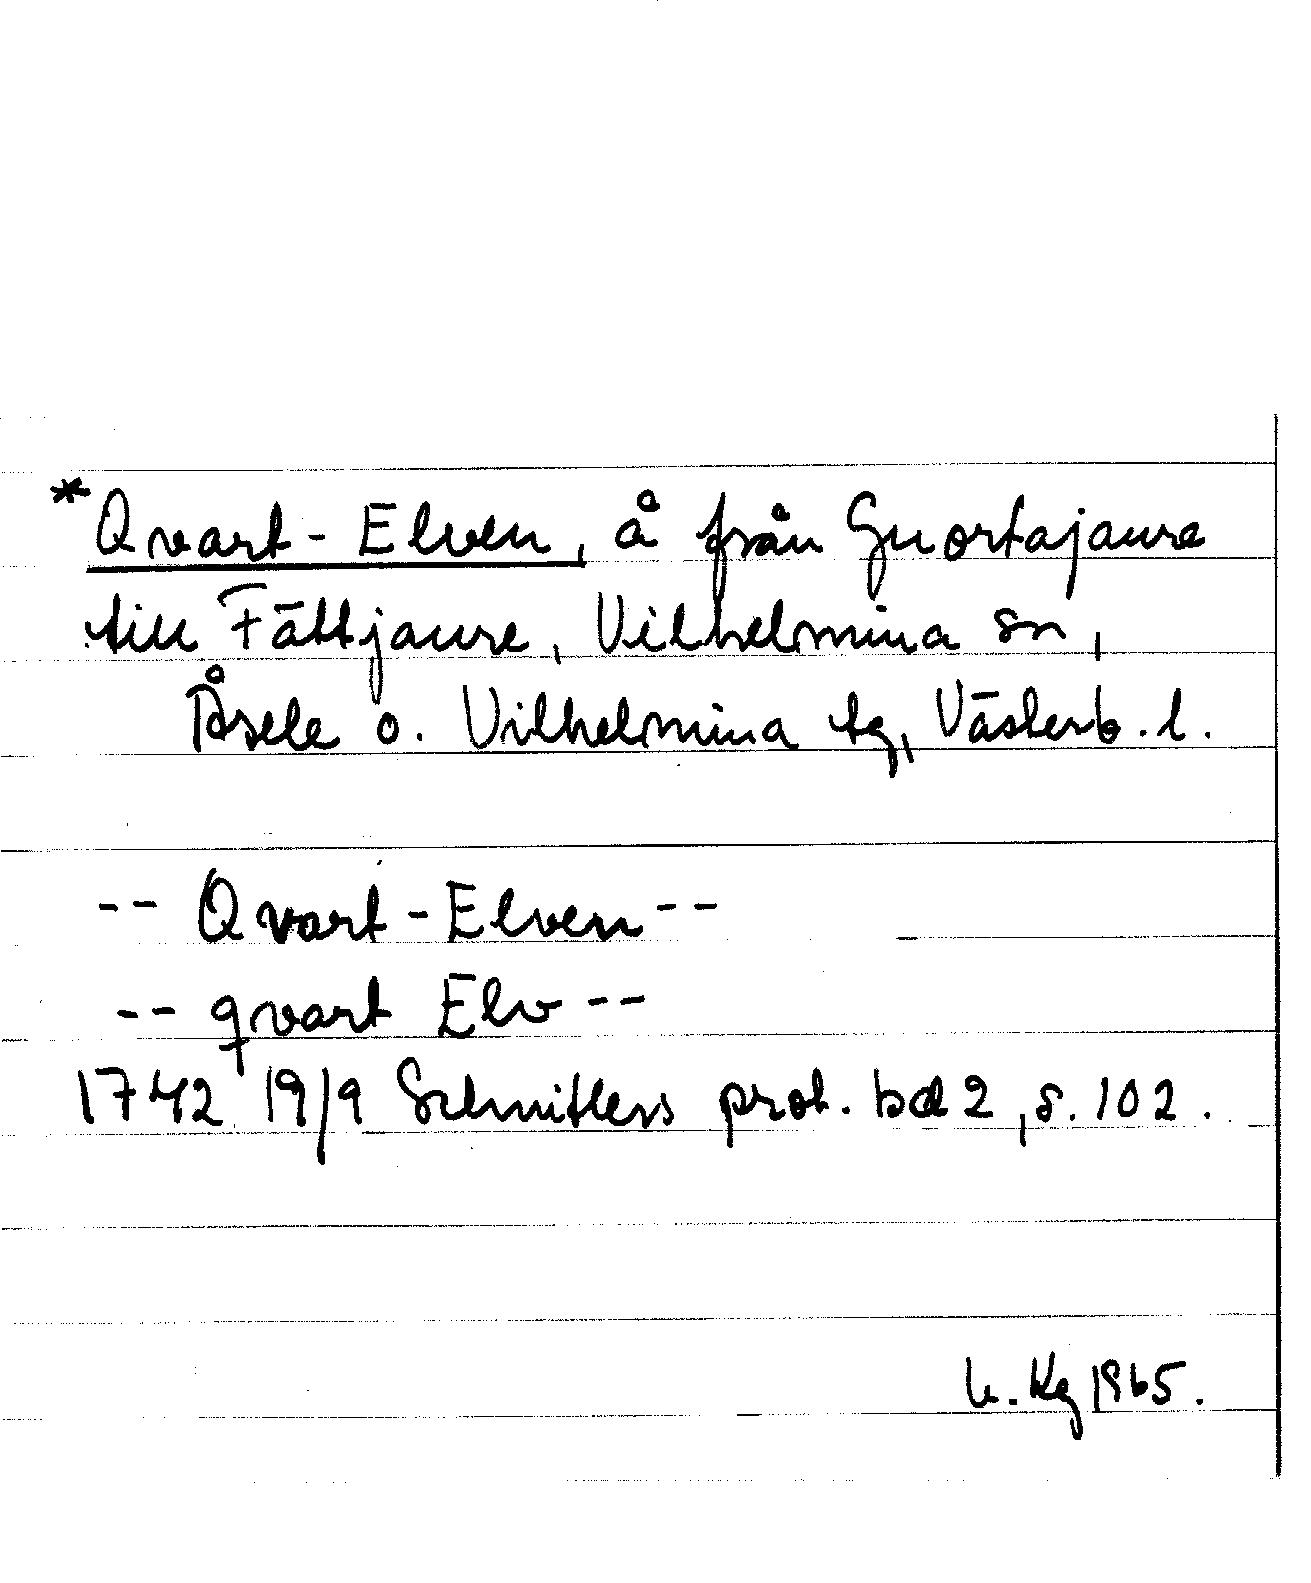 *Qvart-Elven, å från Guortajaure
till Fättjaure, Vilhelmina sn,
Åsele o. Vilhelmina tg, Västerb. l.
-- Qvart-Elven --
-- qvart Elv --
1742 19/9 Schnitlers prot. bd 2, s. 102.
U. Kg 1965.